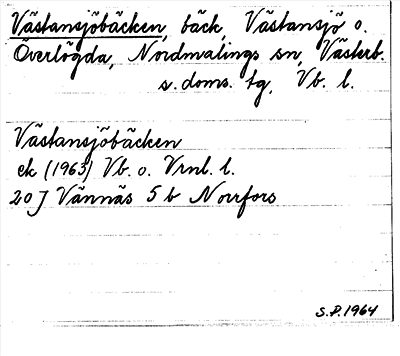 Västansjöbäcken, bäck, Västansjö o.
Överlögda, Nordmalings sn, Västerb.
s. doms. tg, Vb. l.
Västansjöbäcken
ek (1963) Vb. o. Vrnl. l.
20 J Vännäs 5 b Norrfors
S.P. 1964